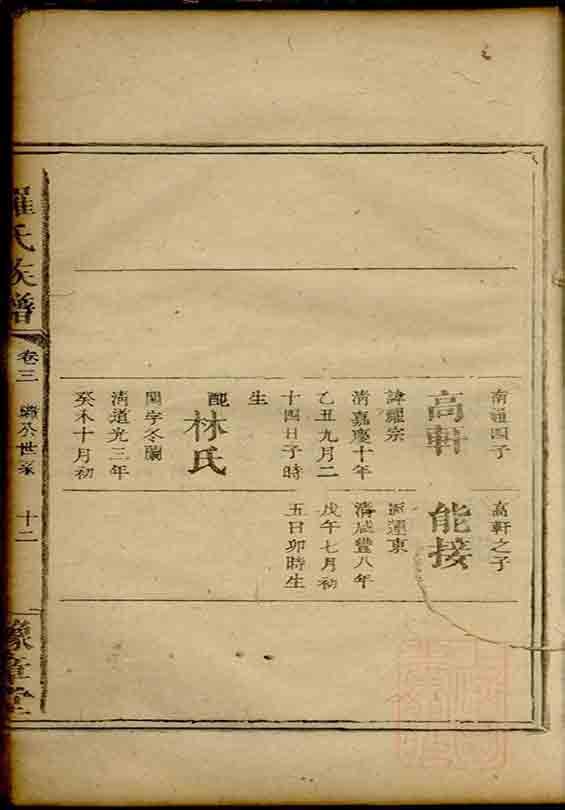 南通四子
高軒
諱耀宗
清嘉慶十年
乙丑九月二
十四日子時
生
配
林氏
閨字冬蘭
清道光三年
癸未十月初
高軒之子
能接
派運東
清咸豐八年
戊午七月初
五日卯時生
羅氏族譜
卷三
公世系
十二
豫章堂